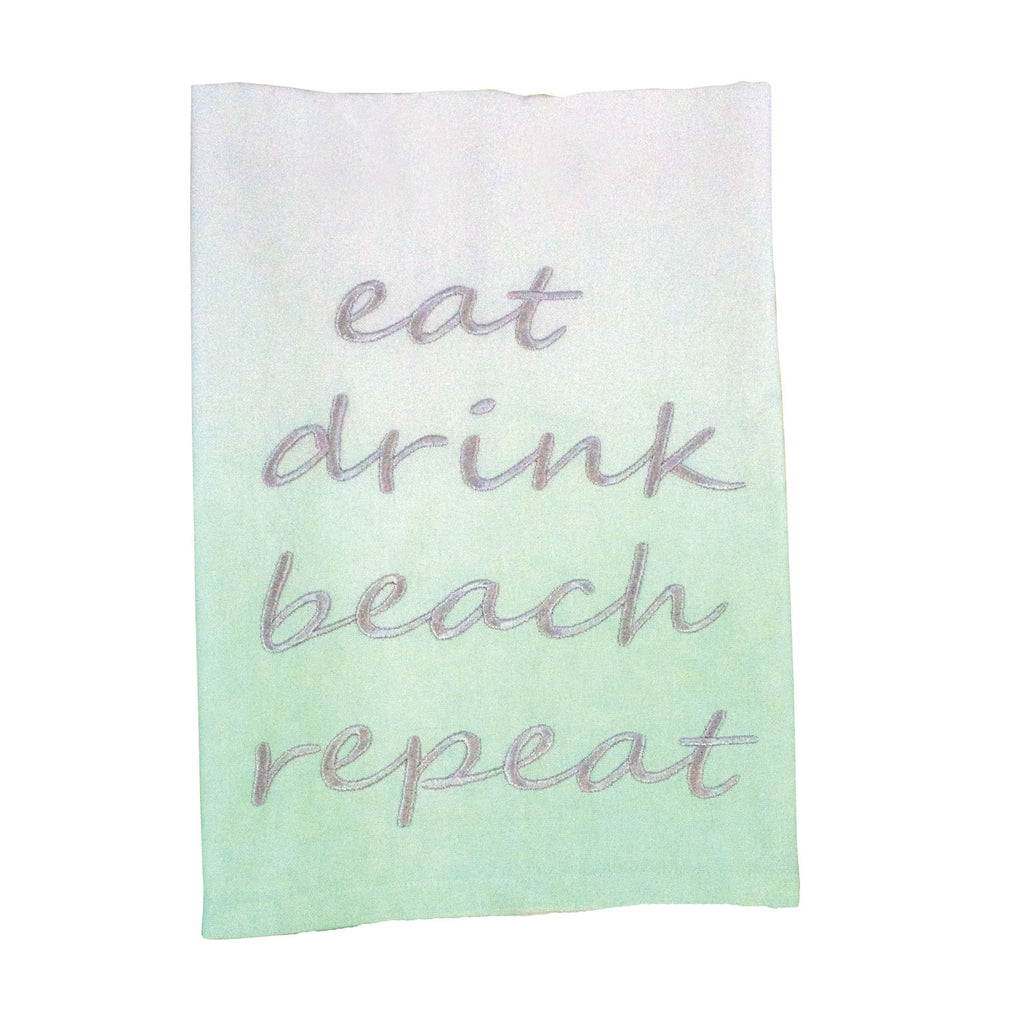 eat
drink
beach
repeat